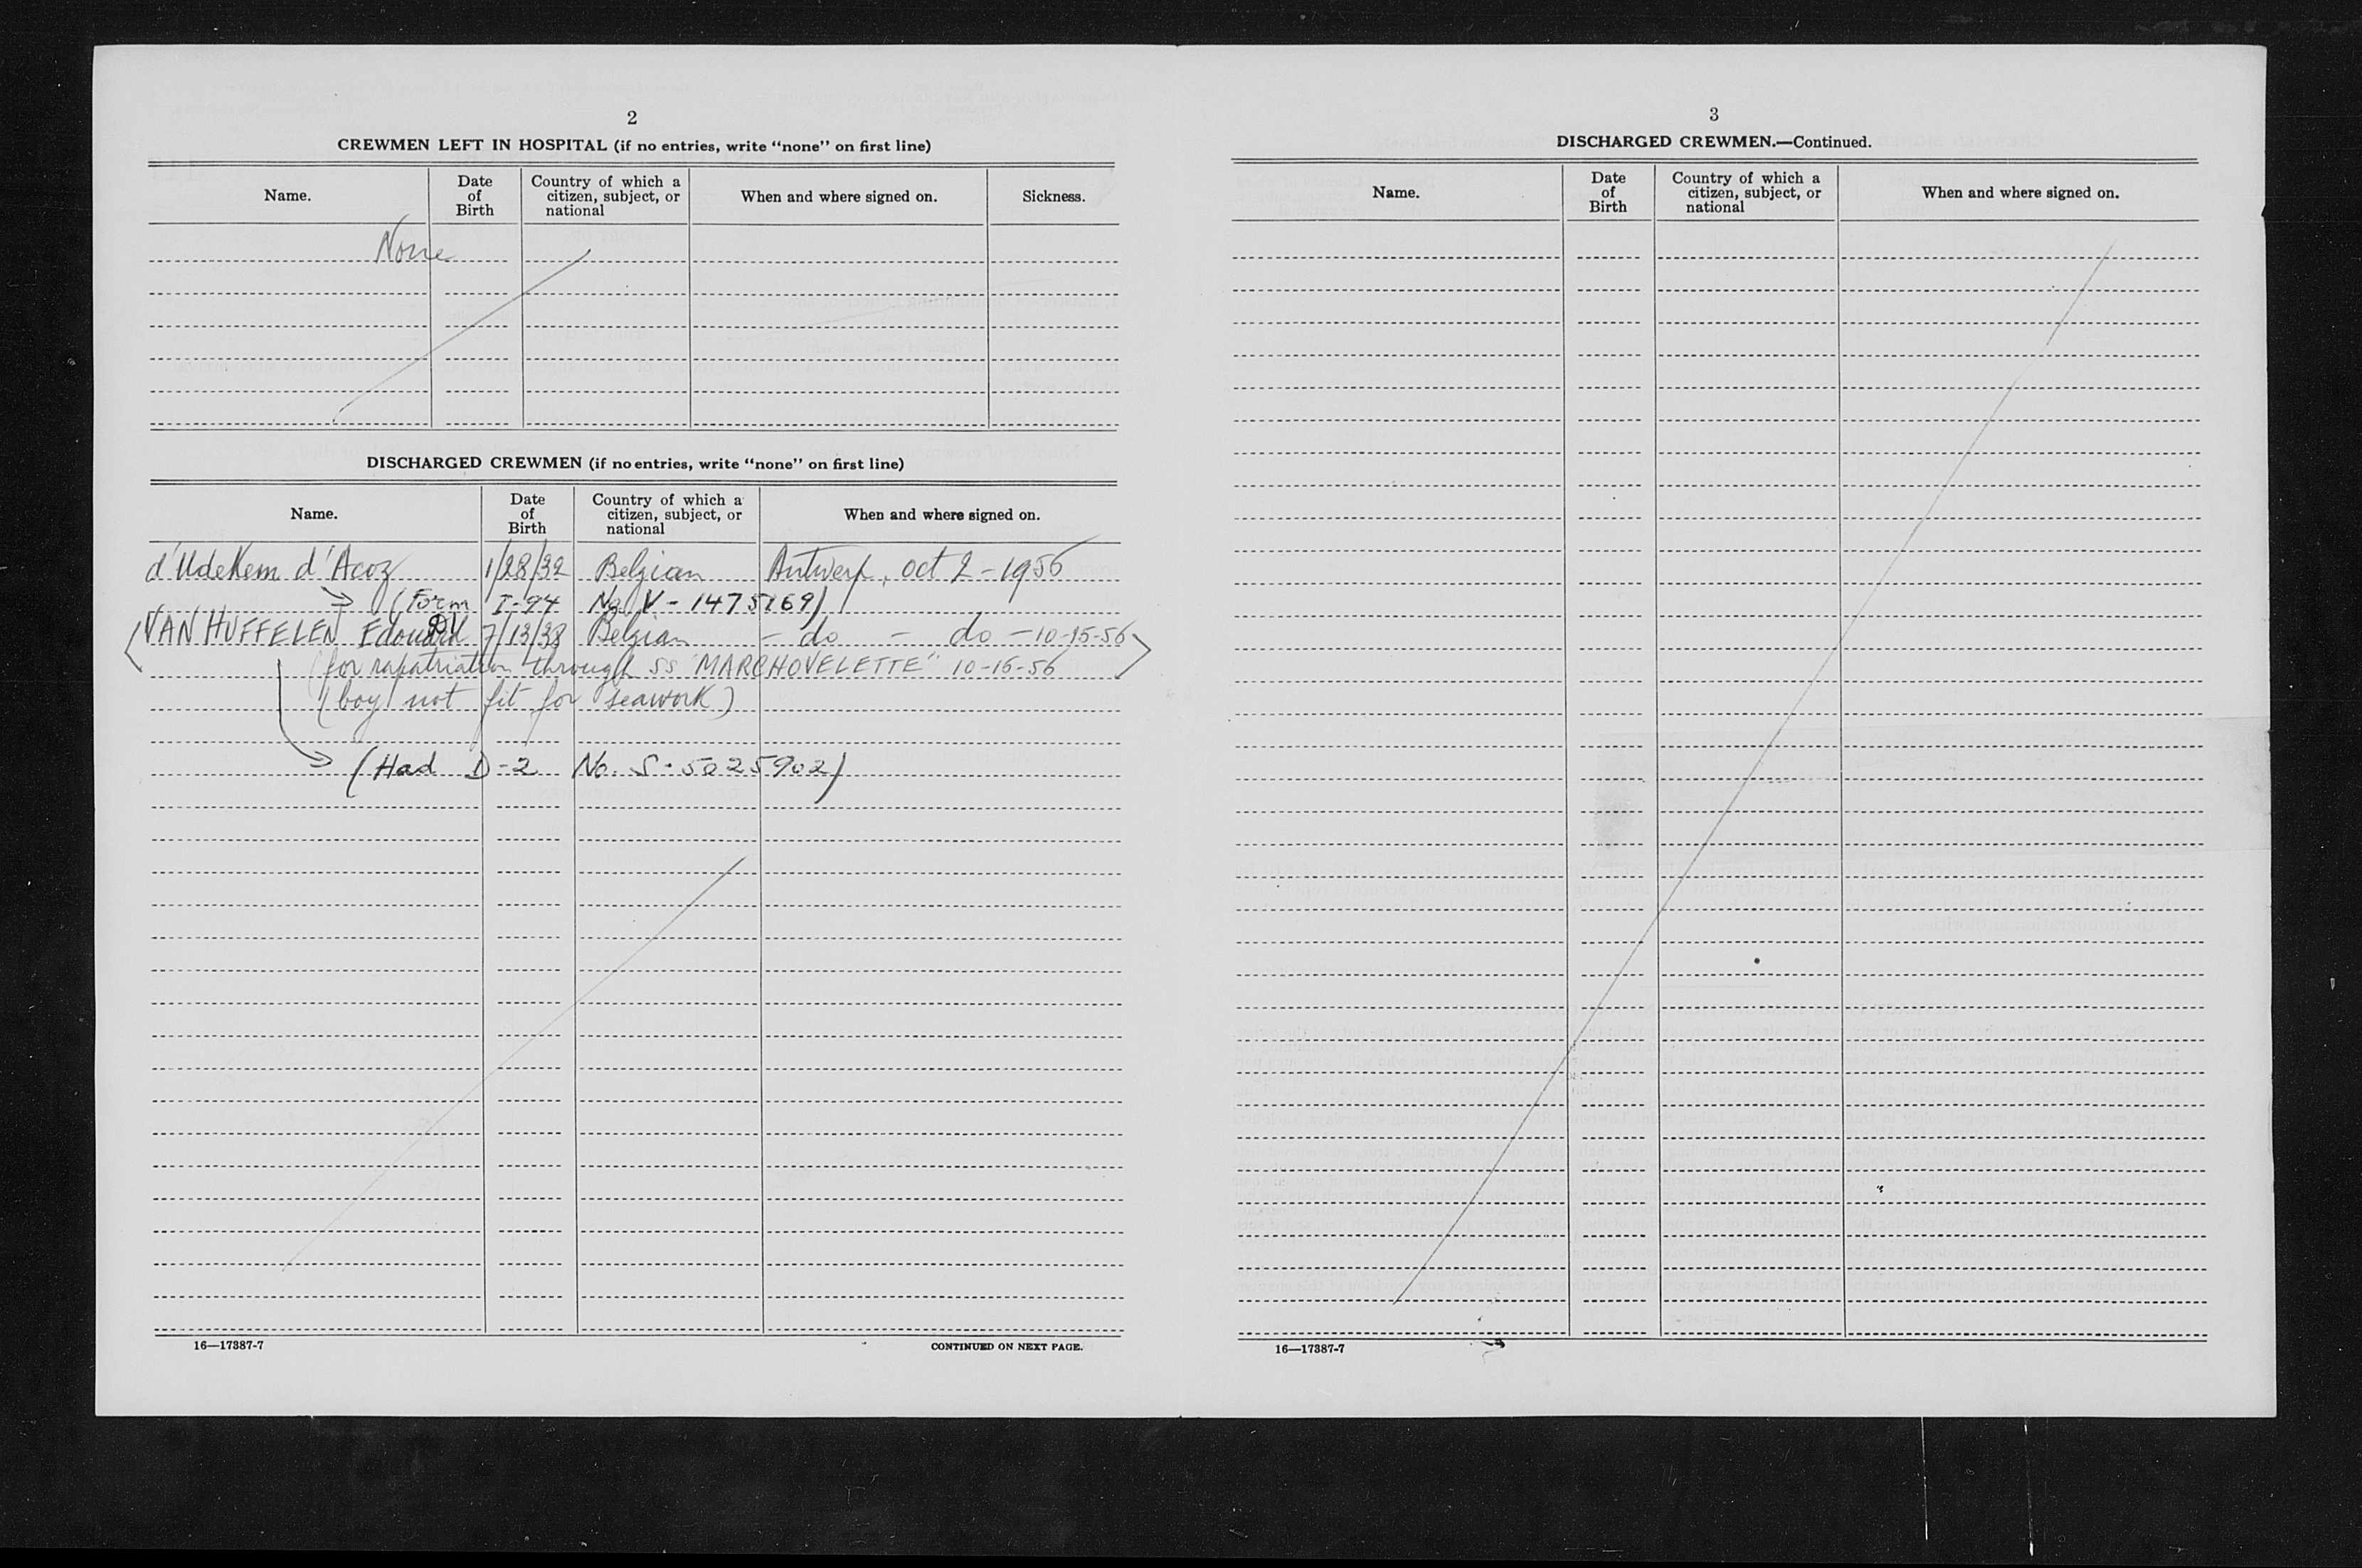 2
CREWMEN LEFT IN HOSPITAL (if no entries, write "none" on first line)
Name.
Date of Birth
Country of which a citizen, subject, or national
When and where signed on.
Sickness.
None
DISCHARGED CREWMEN (if no entries, write "none" on first line)
Name.
Date of Birth
Country of which a citizen, subject, or national
When and where signed on.
d'Udekem d'Acoz 1/28/32 Belgian Antwerp, oct 2-1956
(Form I-94 No V-1475169)
VAN HUFFELEN Edouard 7/13/38 Belgian - do - do - 10-15-56
(for rapatriation through SS "MARCHOVELETTE" 10-16-56
(boy not fit for seawork)
(Had D-2 No. S-5025902)
16—17387-7
CONTINUED ON NEXT PAGE.
3
DISCHARGED CREWMEN.—Continued.
Name.
Date of Birth
Country of which a citizen, subject, or national
When and where signed on.
16—17387-7